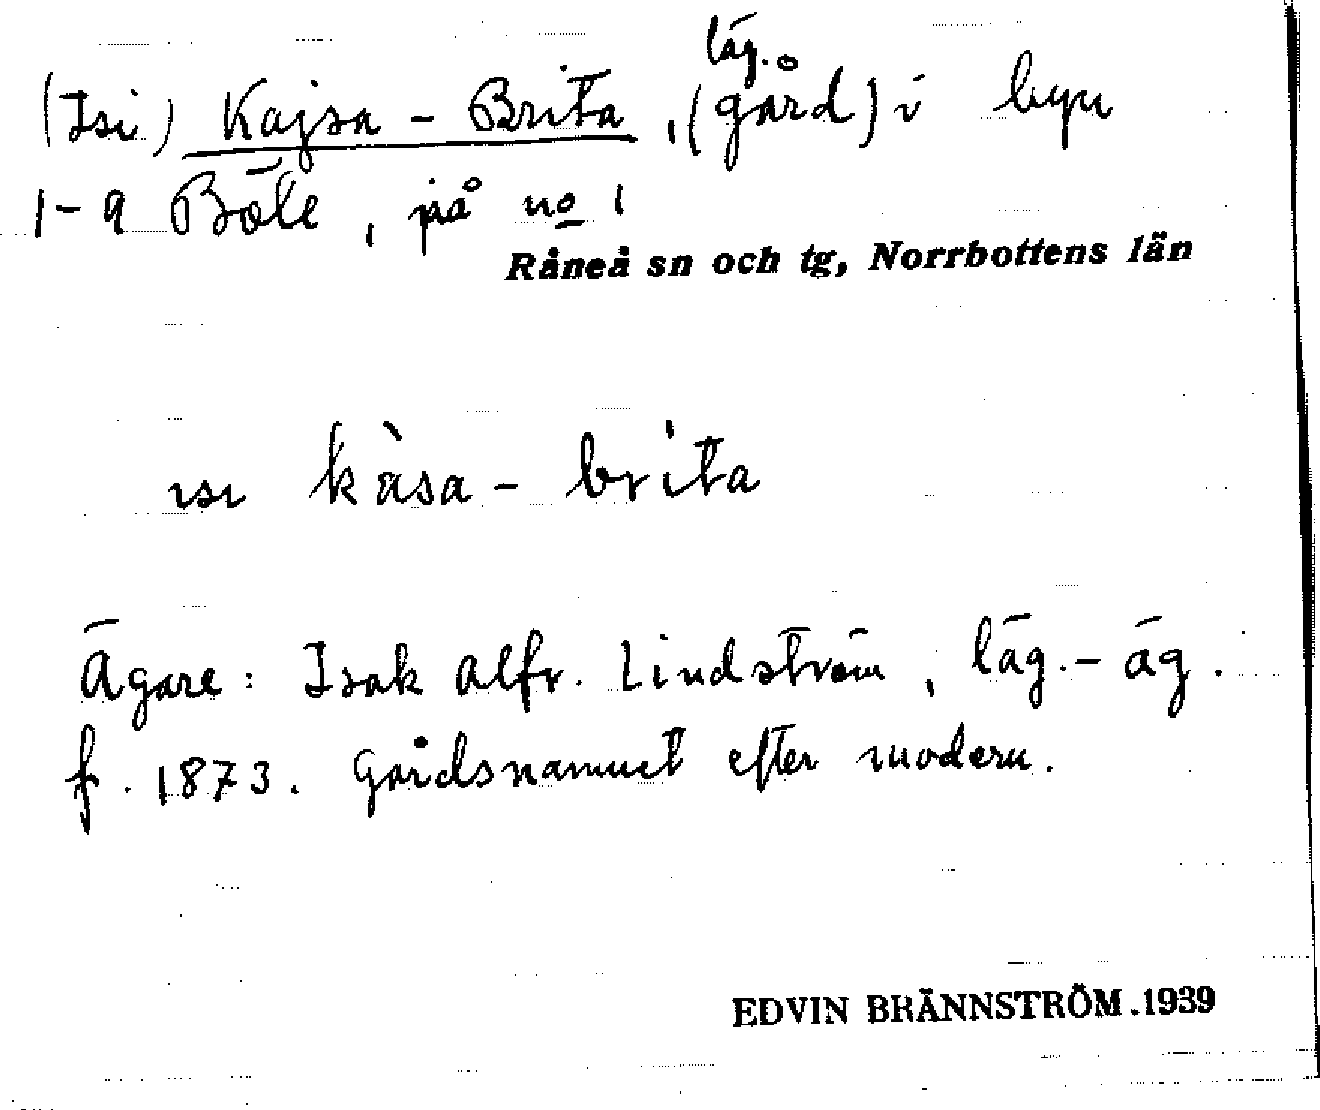 läg.
(Isi) Kajsa - Brita, (gård) i byn
1-9 Böle, på no 1
Råneå sn och tg, Norrbottens län
ısı kàsa - brita
Ägare: Isak Alfr. Lindström, läg.- äg.
f. 1873. Gårdsnamnet efter modern.
EDVIN BRÄNNSTRÖM.1939